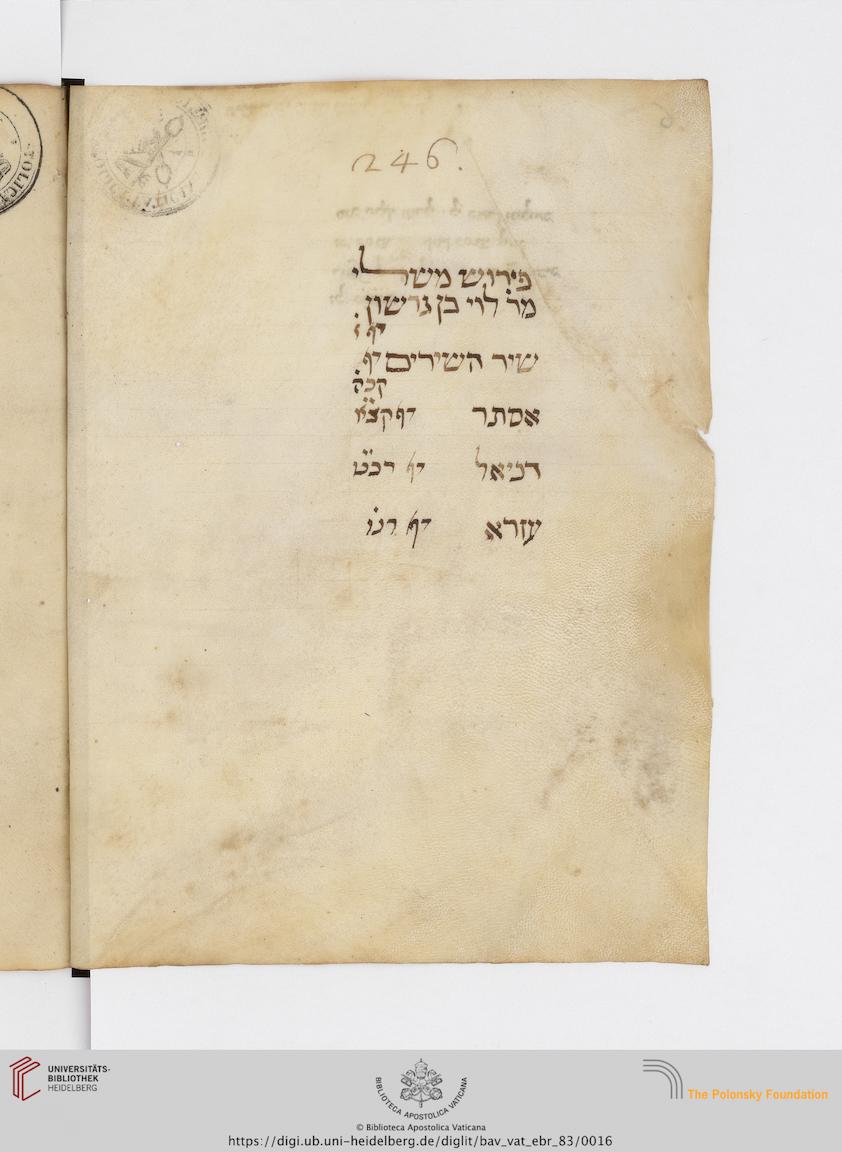 246.
פירוש משלי
מר׳ לוי בן גרשון
דף ז׳
שיר השירים דף
קכה
אסתר דף קצא
דניאל דף רכט
עזרא דף רנו
UNIVERSITÄTS-
BIBLIOTHEK
HEIDELBERG
BIBLIOTECA APOSTOLICA VATICANA
The Polonsky Foundation
© Biblioteca Apostolica Vaticana
https://digi.ub.uni-heidelberg.de/diglit/bav_vat_ebr_83/0016